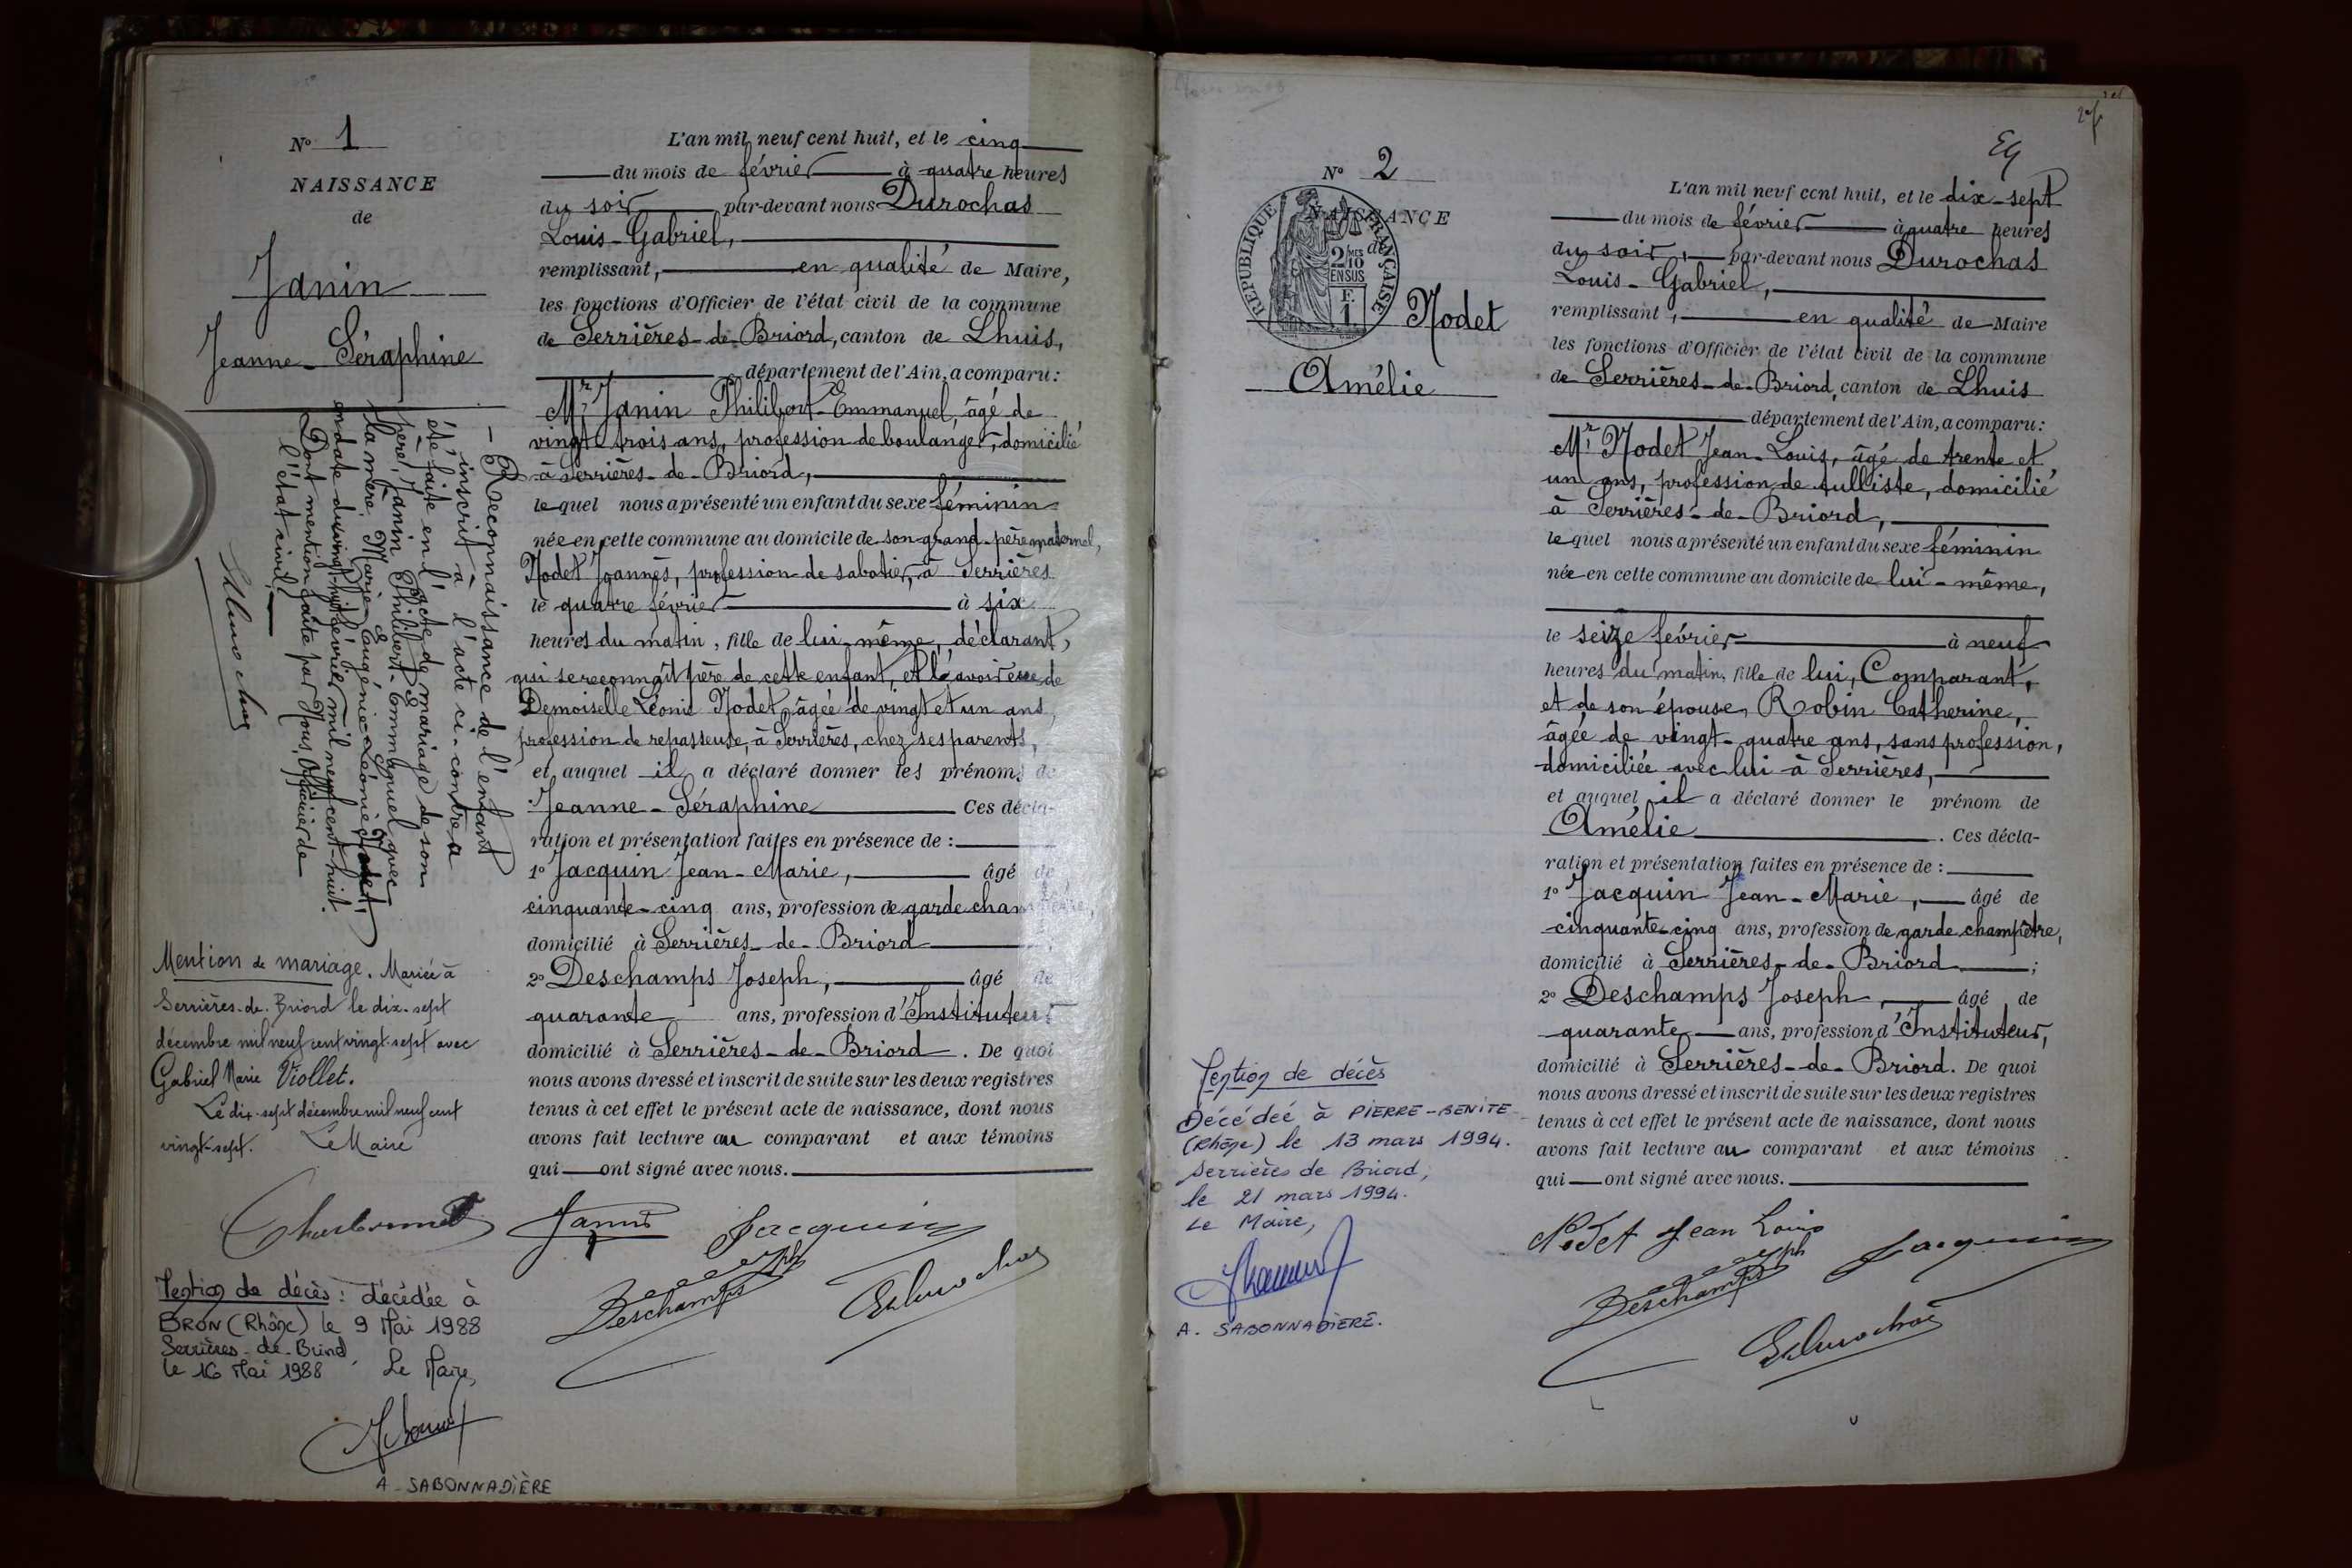 N° 1
NAISSANCE
de
Janin
Jeanne-Séraphine
L'an mil neuf cent huit, et le cinq
du mois de février à quatre heures
du soir par-devant nous Durochas
Louis-Gabriel,
remplissant, en qualité de Maire,
les fonctions d'Officier de l'état civil de la commune
de Serrières-de-Briord, canton de Lhuis,
département de l'Ain, a comparu :
Mr Janin Philibert-Emmanuel, âgé de
vingt-trois ans, profession de boulanger, domicilié
à Serrières-de-Briord,
lequel nous a présenté un enfant du sexe féminin
née en cette commune au domicile de son grand-père maternel,
Nodet Joannès, profession de sabotier, à Serrières
le quatre février à six
heures du matin, fille de lui-même, déclarant,
qui se reconnaît père de cette enfant, et l'avoir eue de
Demoiselle Léonie Nodet, âgée de vingt et un ans,
profession de repasseuse, à Serrières, chez ses parents,
et auquel il a déclaré donner les prénoms de
Jeanne-Séraphine Ces décla-
ration et présentation faites en présence de :
1° Jacquin Jean-Marie, âgé de
cinquante-cinq ans, profession de garde champêtre,
domicilié à Serrières-de-Briord
2° Deschamps Joseph, âgé de
quarante ans, profession d'Instituteur
domicilié à Serrières-de-Briord. De quoi
nous avons dressé et inscrit de suite sur les deux registres
tenus à cet effet le présent acte de naissance, dont nous
avons fait lecture au comparant et aux témoins
qui ont signé avec nous.
Janin Jacquin
Joseph
Deschamps
Durochas
- Reconnaissance de l'enfant
inscrit à l'acte ci-contre a
été faite en l'acte de mariage de son
père, Janin Philibert-Emmanuel avec
la mère, Marie Eugénie Léonie Nodet,
en date du vingt-huit février mil neuf cent huit.
Dont mention faite par Nous, Officier de
l'état civil,
Durochas
Mention de mariage. Mariée à
Serrières-de-Briord le dix-sept
décembre mil neuf cent vingt-sept avec
Gabriel Marie Viollet.
Le dix-sept décembre mil neuf cent
vingt-sept. Le Maire
Mention de décès : décédée à
BRON (Rhône) le 9 Mai 1988
Serrières-de-Briord
le 16 Mai 1988 Le Maire,
A. SABONNADIÈRE
N° 2
NAISSANCE
de
REPUBLIQUE FRANÇAISE
2 MES
10
EN SUS
F.
1
Nodet
Amélie
L'an mil neuf cent huit, et le dix-sept
du mois de février à quatre heures
du soir, par-devant nous Durochas
Louis-Gabriel,
remplissant, en qualité de Maire
les fonctions d'Officier de l'état civil de la commune
de Serrières-de-Briord, canton de Lhuis
département de l'Ain, a comparu :
Mr Nodet Jean-Louis, âgé de trente et
un ans, profession de tulliste, domicilié
à Serrières-de-Briord,
lequel nous a présenté un enfant du sexe féminin
née en cette commune au domicile de lui-même,
le seize février à neuf
heures du matin, fille de lui, Comparant,
et de son épouse, Robin Catherine,
âgée de vingt-quatre ans, sans profession,
domiciliée avec lui à Serrières,
et auquel il a déclaré donner le prénom de
Amélie. Ces décla-
ration et présentation faites en présence de :
1° Jacquin Jean-Marie, âgé de
cinquante-cinq ans, profession de garde champêtre,
domicilié à Serrières-de-Briord ;
2° Deschamps Joseph, âgé de
quarante ans, profession d'Instituteur,
domicilié à Serrières-de-Briord. De quoi
nous avons dressé et inscrit de suite sur les deux registres
tenus à cet effet le présent acte de naissance, dont nous
avons fait lecture au comparant et aux témoins
qui ont signé avec nous.
Nodet Jean Louis
Joseph Jacquin
Deschamps
Durochas
Mention de décès
Décédée à PIERRE-BENITE
(Rhône) le 13 mars 1994.
Serrières de Briord,
le 21 mars 1994.
Le Maire,
A. SABONNADIÈRE.